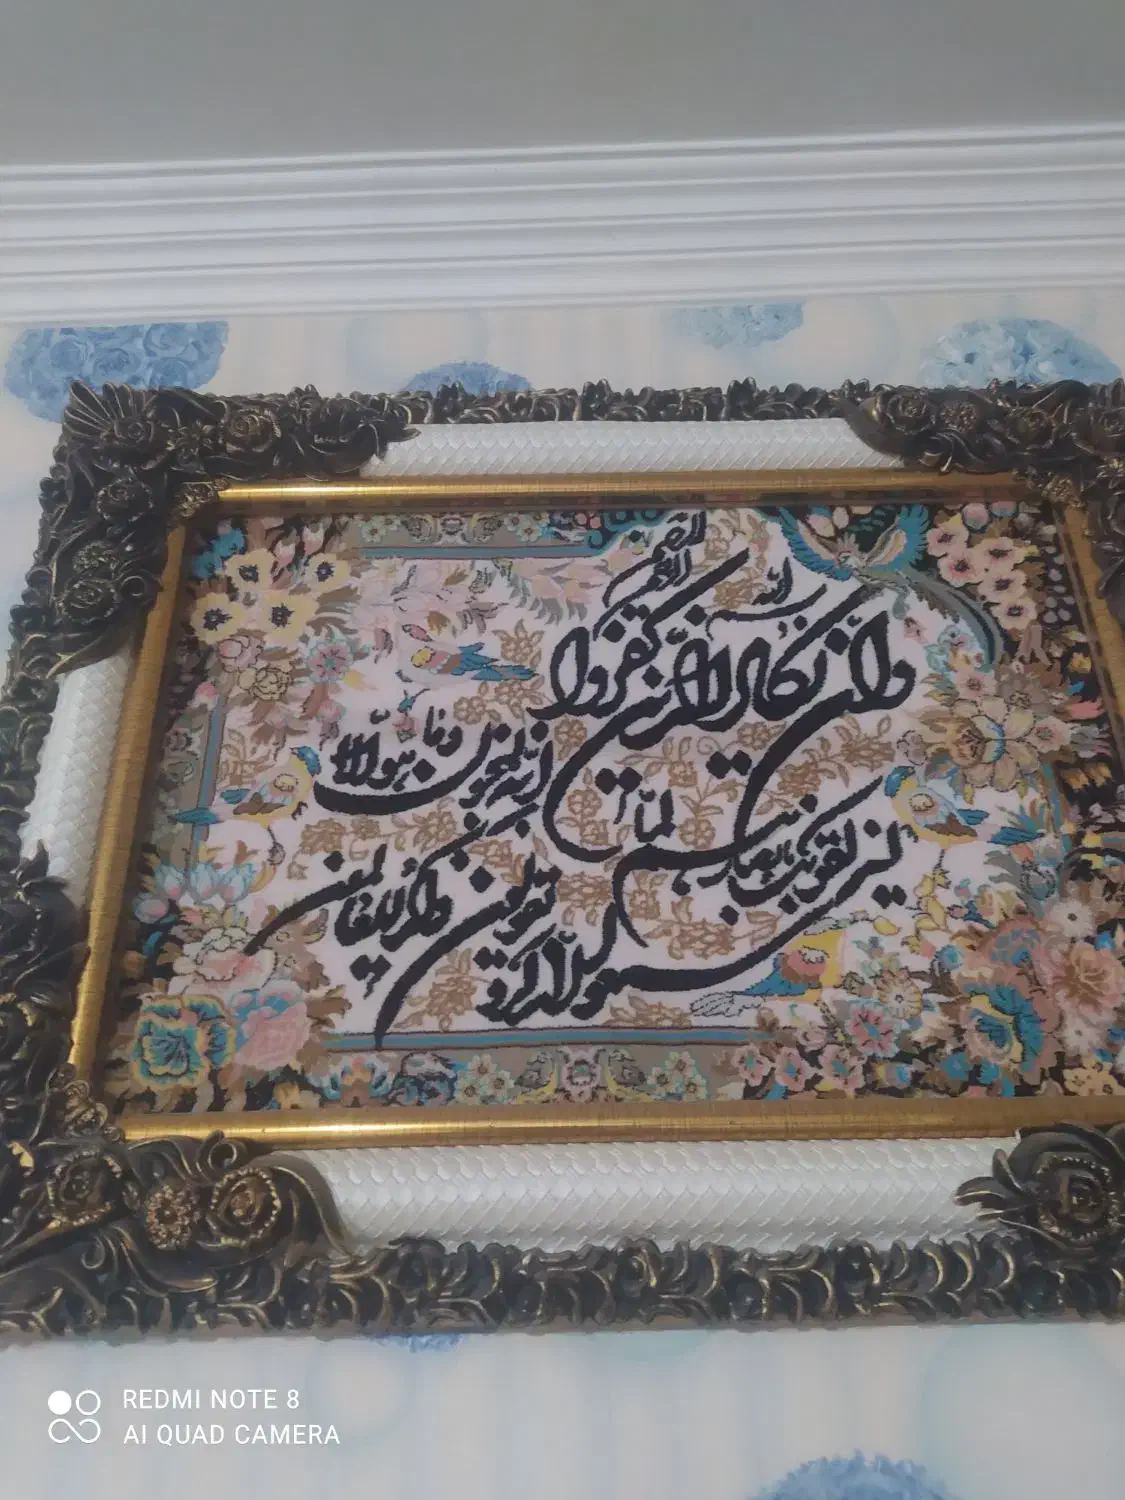 بسم الله الرحمن الرحیم
وان یکاد الذین کفروا
لیزلقونک بابصارهم لما
سمعوا الذکر و یقولون
انه لمجنون و ما هو الا
ذکر للعالمین
REDMI NOTE 8
AI QUAD CAMERA